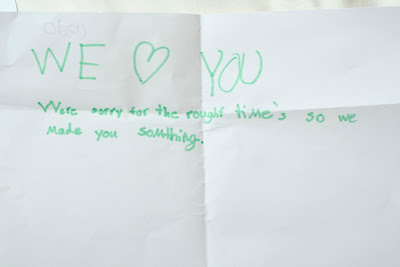 WE ♡ YOU
Were sorry for the rought time's so we
made you something.